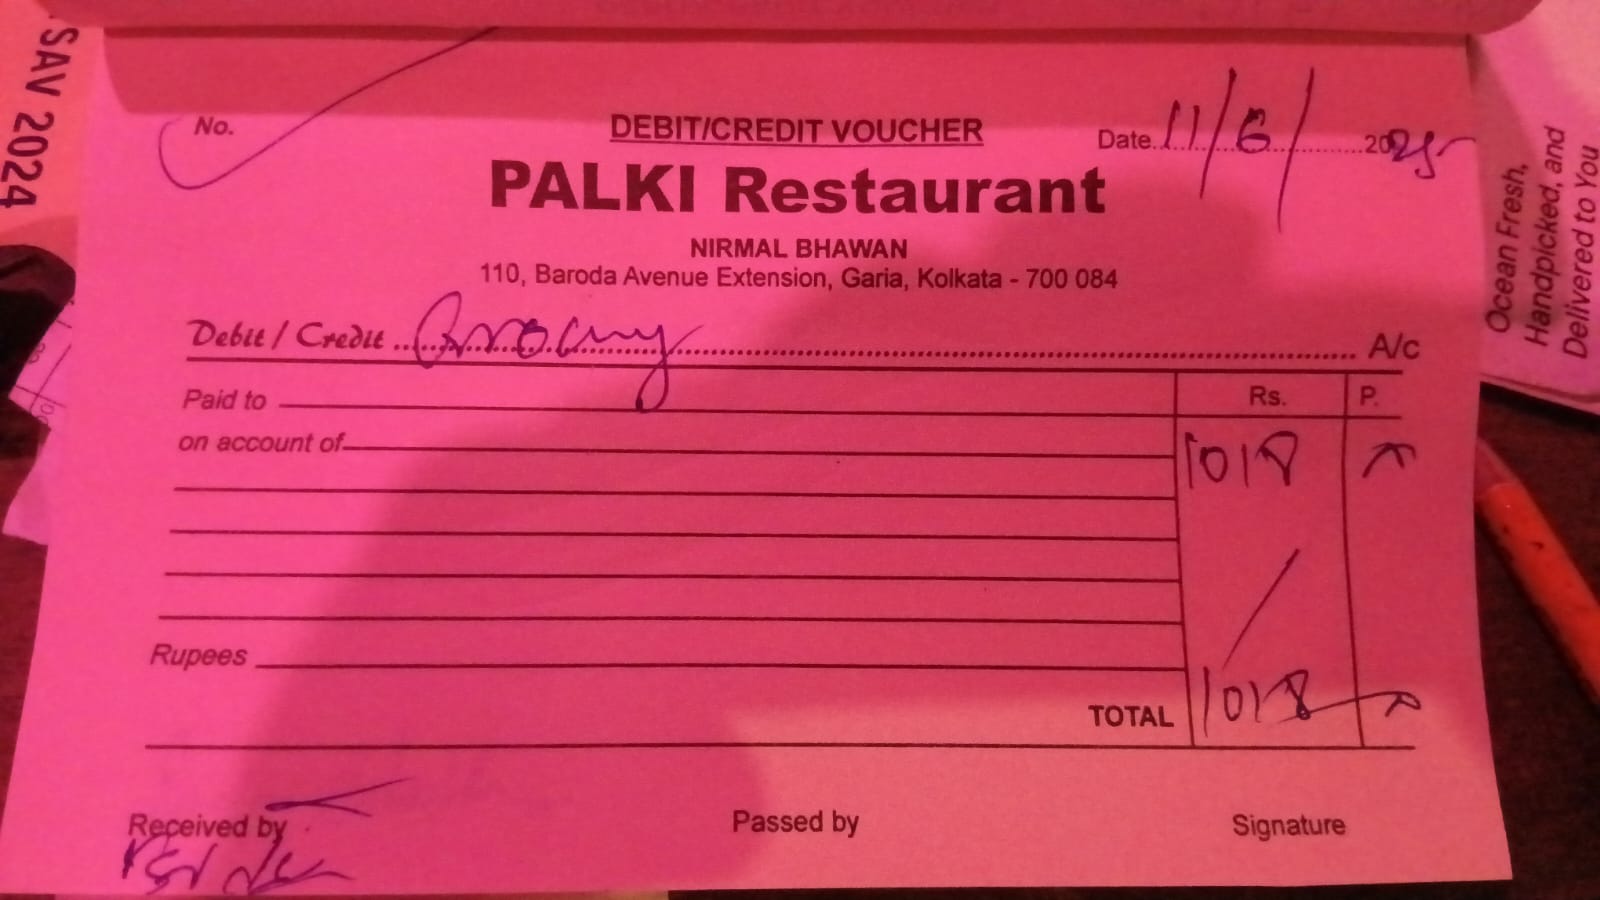 SAV 2024
No.
DEBIT/CREDIT VOUCHER
Date 11/6/2025
PALKI Restaurant
NIRMAL BHAWAN
110, Baroda Avenue Extension, Garia, Kolkata - 700 084
Debit / Credit A/c
Paid to Rs. P.
on account of 1018
Rupees
TOTAL 1018
Received by Passed by Signature
Ocean Fresh,
Handpicked, and
Delivered to You